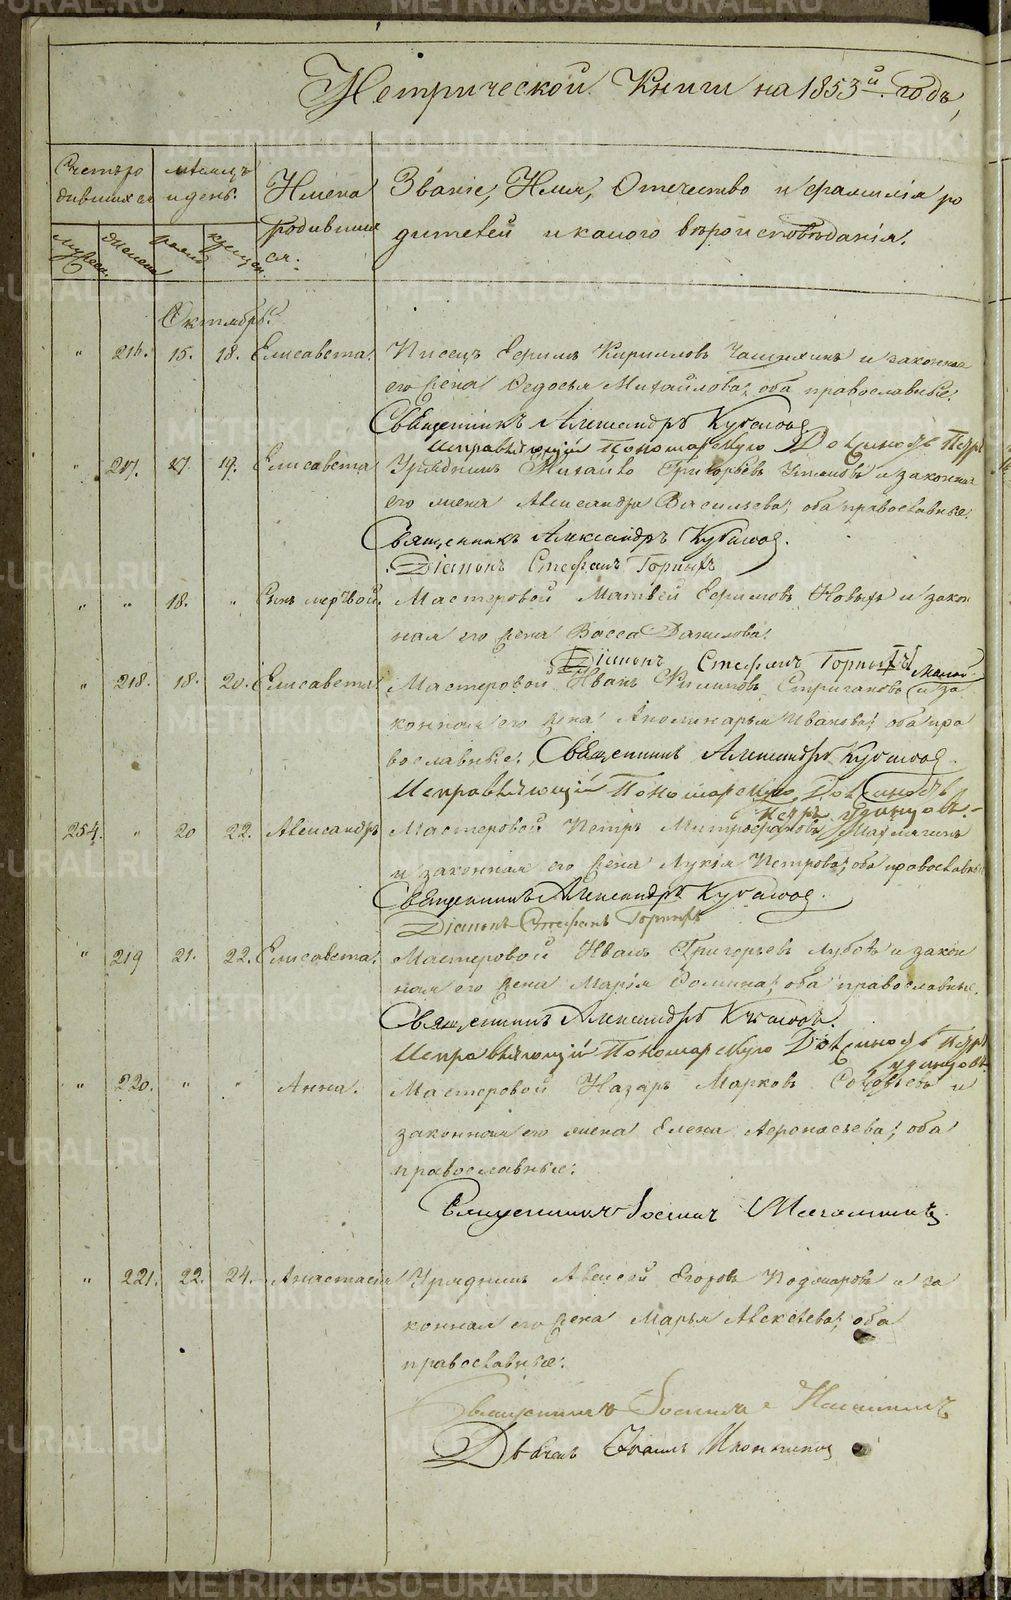 Метрической Книги на 1853й годъ,
Счетъ ро
дившихся
мѣсяцъ
и день.
Имена
родивших
ся.
Званіе, Имя, Отчество и фамилія ро
дителей и какого вѣроисповѣданія.
мужеска.
женска
рожд
крещен.
Октябрь.
" 216. 15. 18. Елисавета. Писецъ Ефимъ Кирилловъ и законная
его жена Федосья Михайлова; оба православные.
Священникъ Александръ
Исправляющій Пономарскую Должность Петръ
" 217. 17. 19. Елисавета Урядникъ Михайло Григорьевъ и законная
его жена Александра Васильева; оба православные.
Священникъ Александръ
Діаконъ Стефанъ Горныхъ
" " 18. " Сынъ мертвой. Мастеровой Матвей Ефимовъ Новыхъ и закон
ная его жена Васса Данилова.
Діаконъ Стефанъ Горныхъ
" 218. 18. 20. Елисавета. Мастеровой Иванъ Филиповъ Стригановъ и за
конная его жена Аполинарья Иванова; оба пра
вославные. Священникъ Александръ
Исправляющій Пономарскую Должность
Петръ Удинцовъ.
254. " 20 22. Александръ Мастеровой Петръ Митрофановъ
и законная его жена Лукія Петрова; оба православные
Священникъ Александръ
Діаконъ Стефанъ Горныхъ
" 219 21. 22. Елисавета. Мастеровой Иванъ Григорьевъ и закон
ная его жена Марія Фомина; оба православные.
Священникъ Александръ
Исправляющій Пономарскую Должность Петръ
Удинцовъ
" 220. " " Анна. Мастеровой Назаръ Марковъ Соловьевъ и
законная его жена Елена Афонасьева; оба
православные.
Священникъ
" 221. 22. 24. Анастасія Урядникъ Алексей Егоровъ и за
конная его жена Марья Алексѣева; оба
православные.
Священникъ
METRIKI.GASO-URAL.RU